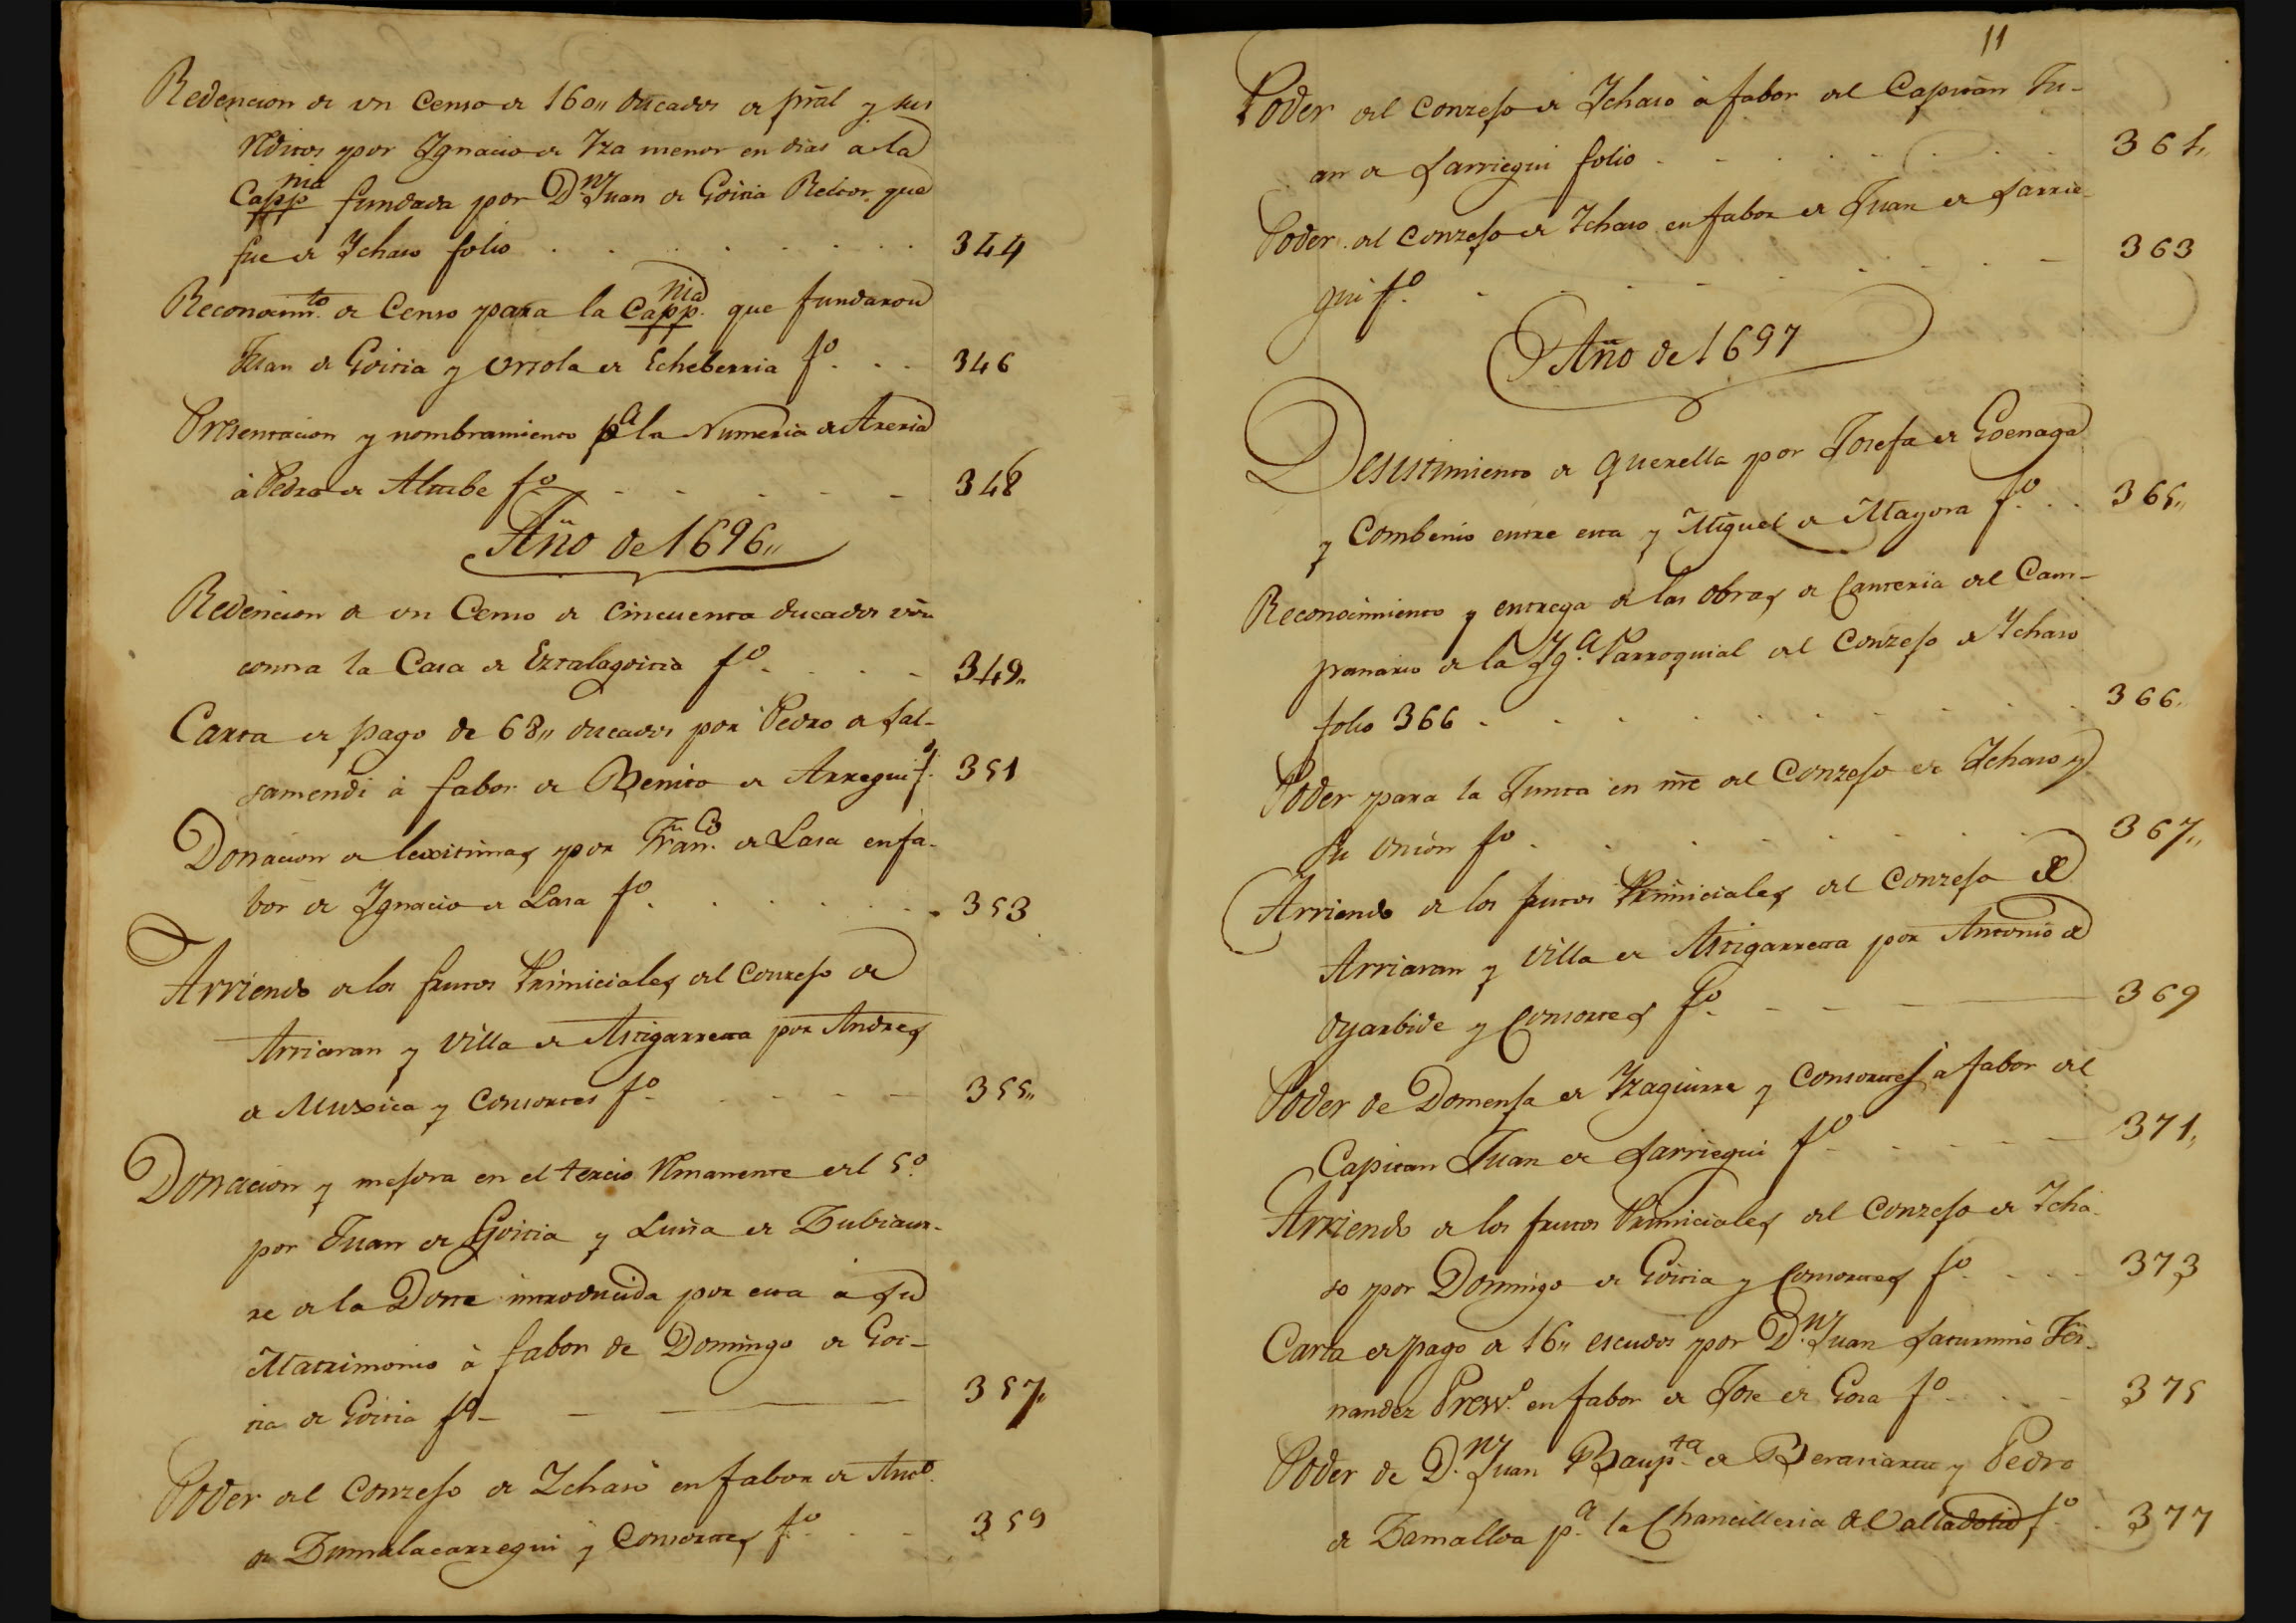 Redencion de vn Censo de 160,, ducados de prãl y sus
reditos por Ignacio de Yza menor en dias a la
Capp.nia fundada por D.n Juan de Goitia Retor que
fue de Ichaso folio . . . . . . . 344
Reconocim.to de Censo para la Capp.nia que fundaron
Juan de Goitia y Vrsola de Echeberria f.o . . 346
Presentacion y nombramiento p.a la Numeria de Areria
à Pedro de Altube f.o - - - - - 348
Año de 1696,,
Redencion de vn Censo de cincuenta ducados
contra la Casa de Ezcalagoitia f.o . . . 349,,
Carta de pago de 68,, ducados por Pedro de Sal-
samendi à fabor de Benito de Arregui f.o 351
Donacion de lexitimas por Fran.co de Lasa en fa-
bor de Ignacio de Lasa f.o . . . . . 353
Arriendo de los frutos Primiciales del Conzejo de
Arriaran y Villa de Astigarreta por Andres
de Muxica y Consortes f.o - - - - 355,,
Donacion y mejora en el tercio remanente del 5.o
por Juan de Goitia y Luisa de Zubiaur-
re de la Dote introducida por esta à su
Matrimonio à fabor de Domingo de Goi-
tia de Goitia f.o - - - - 357,,
Poder del Conzejo de Ichaso en fabor de Ant.o
de Zumalacarregui y Consortes f.o . . 359
11
Poder del Conzejo de Ichaso à fabor del Capitan Ju-
an de Larriegui folio . . . . . . 361,,
Poder del Conzejo de Ichaso en fabor de Juan de Larrie-
gui f.o - - - - - - 363
Año de 1697
Desistimiento de querella por Josefa de Goenaga
y Combenio entre esta y Miguel de Mayora f.o . . 365,,
Reconocimiento y entrega de las obras de Canteria del Cam-
panario de la Yg.a Parroquial del Conzejo de Ichaso
folio 366 . . . . . . . . 366,,
Poder para la Junta en nrẽ del Conzejo de Ichaso y
su Vnion f.o . . . . . . 367,,
Arriendo de los frutos Primiciales del Conzejo de
Arriaran y Villa de Astigarreta por Antonio de
Oyarbide y Consortes f.o - - - 369
Poder de Domenja de Yzaguirre y Consortes à fabor del
Capitan Juan de Larriegui f.o - - - 371,,
Arriendo de los frutos Primiciales del Conzejo de Icha-
so por Domingo de Goitia y Consortes f.o . . . 373
Carta de pago de 16,, escudos por D.n Juan Saturnino Fer-
nandez Presv.o en fabor de Jose de Gosa f.o . . . 375
Poder de D.n Juan Baup.ta de Berasiartu y Pedro
de Zamalloa p.a la Chancilleria de Valladolid f.o . 377